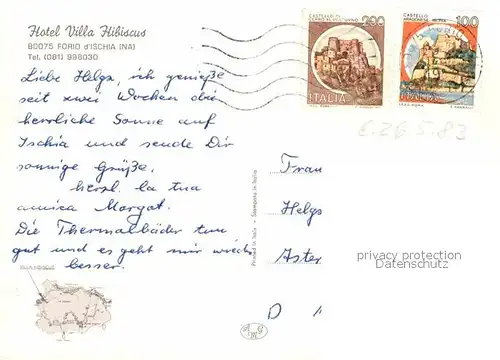 Hotel Villa Hibiscus
80075 FORIO d'ISCHIA (NA)
Tel. (081) 998030
Liebe Helga, ich genieße
seit zwei Wochen die
herrliche Sonne auf
Ischia und sende Dir
sonnige Grüße,
herzl. la tua
amica Margot.
Die Thermalbäder tun
gut und es geht mir wieder
besser.
CASTELLO DI
200
ITALIA
CASTELLO
100
ITALIA
E. 26.5.83
Frau
Helga
Aster
D
Printed in Italy - Stampato in Italia
privacy protection
Datenschutz
VILLA HIBISCUS